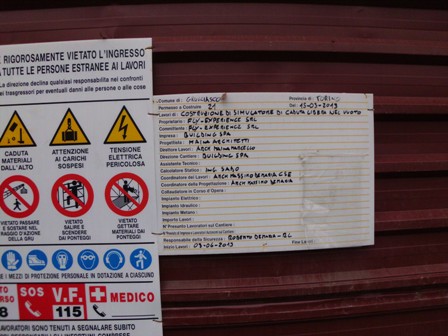 È RIGOROSAMENTE VIETATO L'INGRESSO
A TUTTE LE PERSONE ESTRANEE AI LAVORI
La direzione declina qualsiasi responsabilità nei confronti
dei trasgressori per eventuali danni alle persone o alle cose
CADUTA MATERIALI DALL'ALTO
ATTENZIONE AI CARICHI SOSPESI
TENSIONE ELETTRICA PERICOLOSA
VIETATO PASSARE E SOSTARE NEL RAGGIO D'AZIONE DELLA GRU
VIETATO SALIRE E SCENDERE DAI PONTEGGI
VIETATO GETTARE MATERIALI DAI PONTEGGI
I MEZZI DI PROTEZIONE PERSONALE IN DOTAZIONE A CIASCUNO
SOS V.F. MEDICO
8 115
LAVORATORI SONO TENUTI A SEGNALARE SUBITO
Comune di: GRUGLIASCO Provincia di: TORINO
Permesso a Costruire 21 Del: 15-03-2013
Lavori di: COSTRUZIONE DI SIMULATORE DI CADUTA LIBERA NEL VUOTO
Proprietario: FLY-EXPERIENCE SRL
Committente: FLY-EXPERIENCE SRL
Impresa: BUILDING SPA
Progettista: MAINA ARCHITETTI
Direttore Lavori: ARCH MAINA MARCELLO
Direzione Cantiere: BUILDING SPA
Assistente Tecnico:
Calcolatore Statico: ING.
Coordinatore dei Lavori: ARCH MASSIMO BERARIA CSE
Coordinatore della Progettazione: ARCH MASSIMO BERARIA
Collaudatore in Corso d'Opera:
Impianto Elettrico:
Impianto Idraulico:
Impianto Metano:
Impianto Lavori:
N° Presunto Lavoratori sul Cantiere:
Responsabile della Sicurezza: ROBERTO
Inizio Lavori: 03-06-2013 Fine La